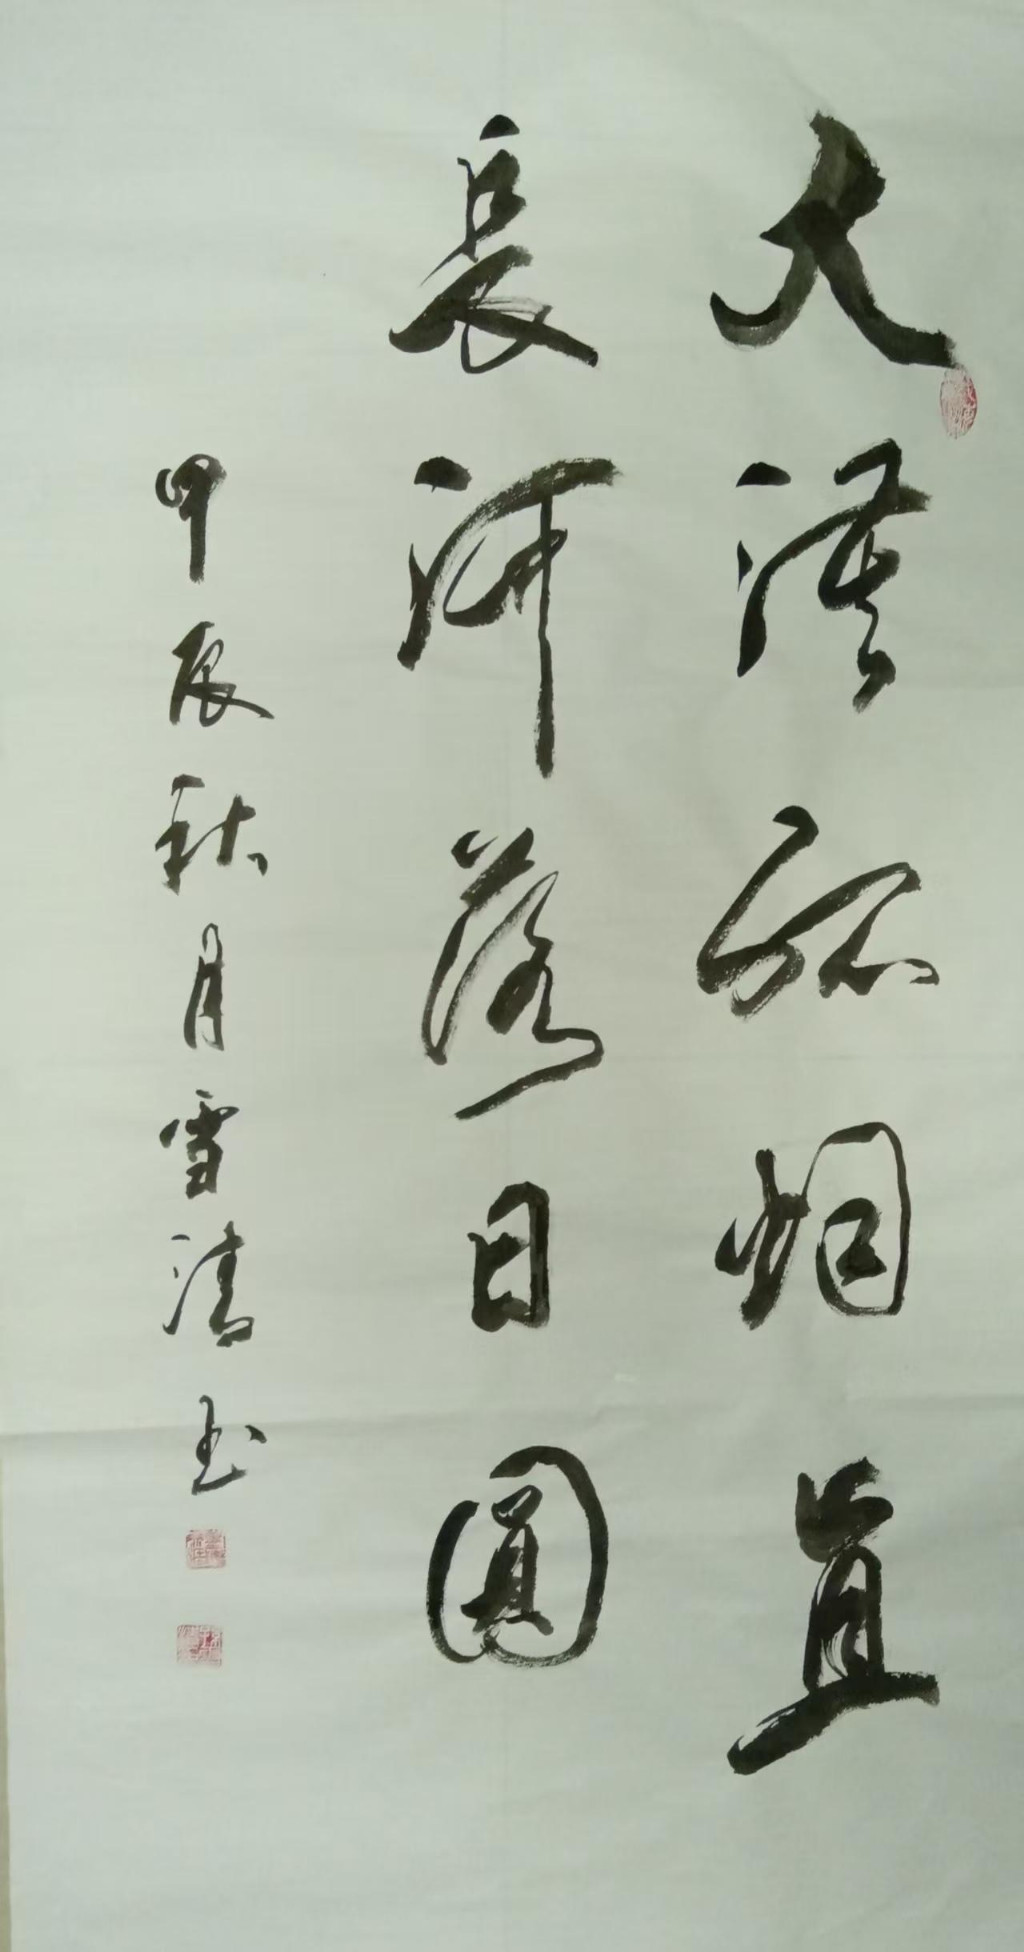 大漠孤烟直
長河落日圓
甲辰秋月雪清书